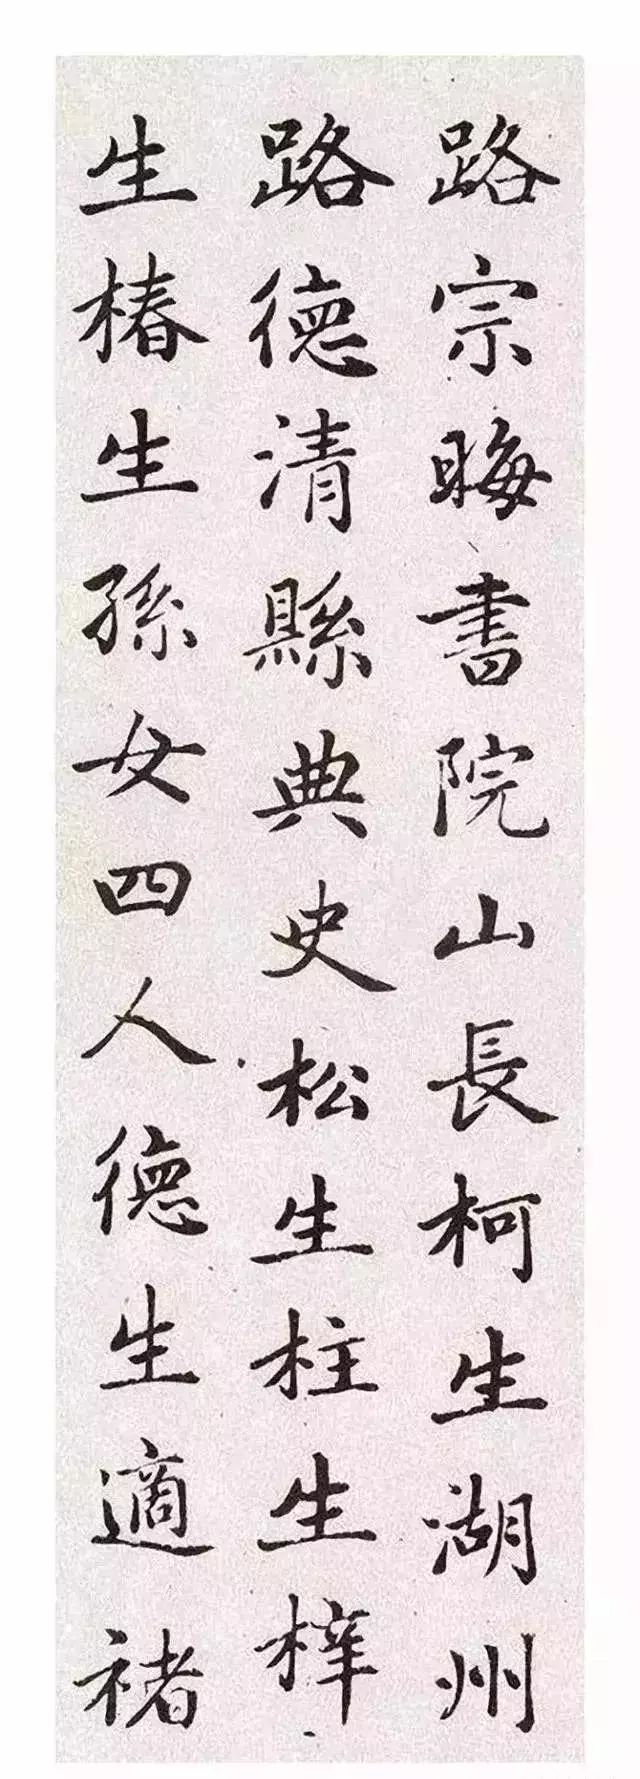 路宗晦書院山長柯生湖州
路德清縣典史松生柱生梓
生椿生孫女四人德生適褚